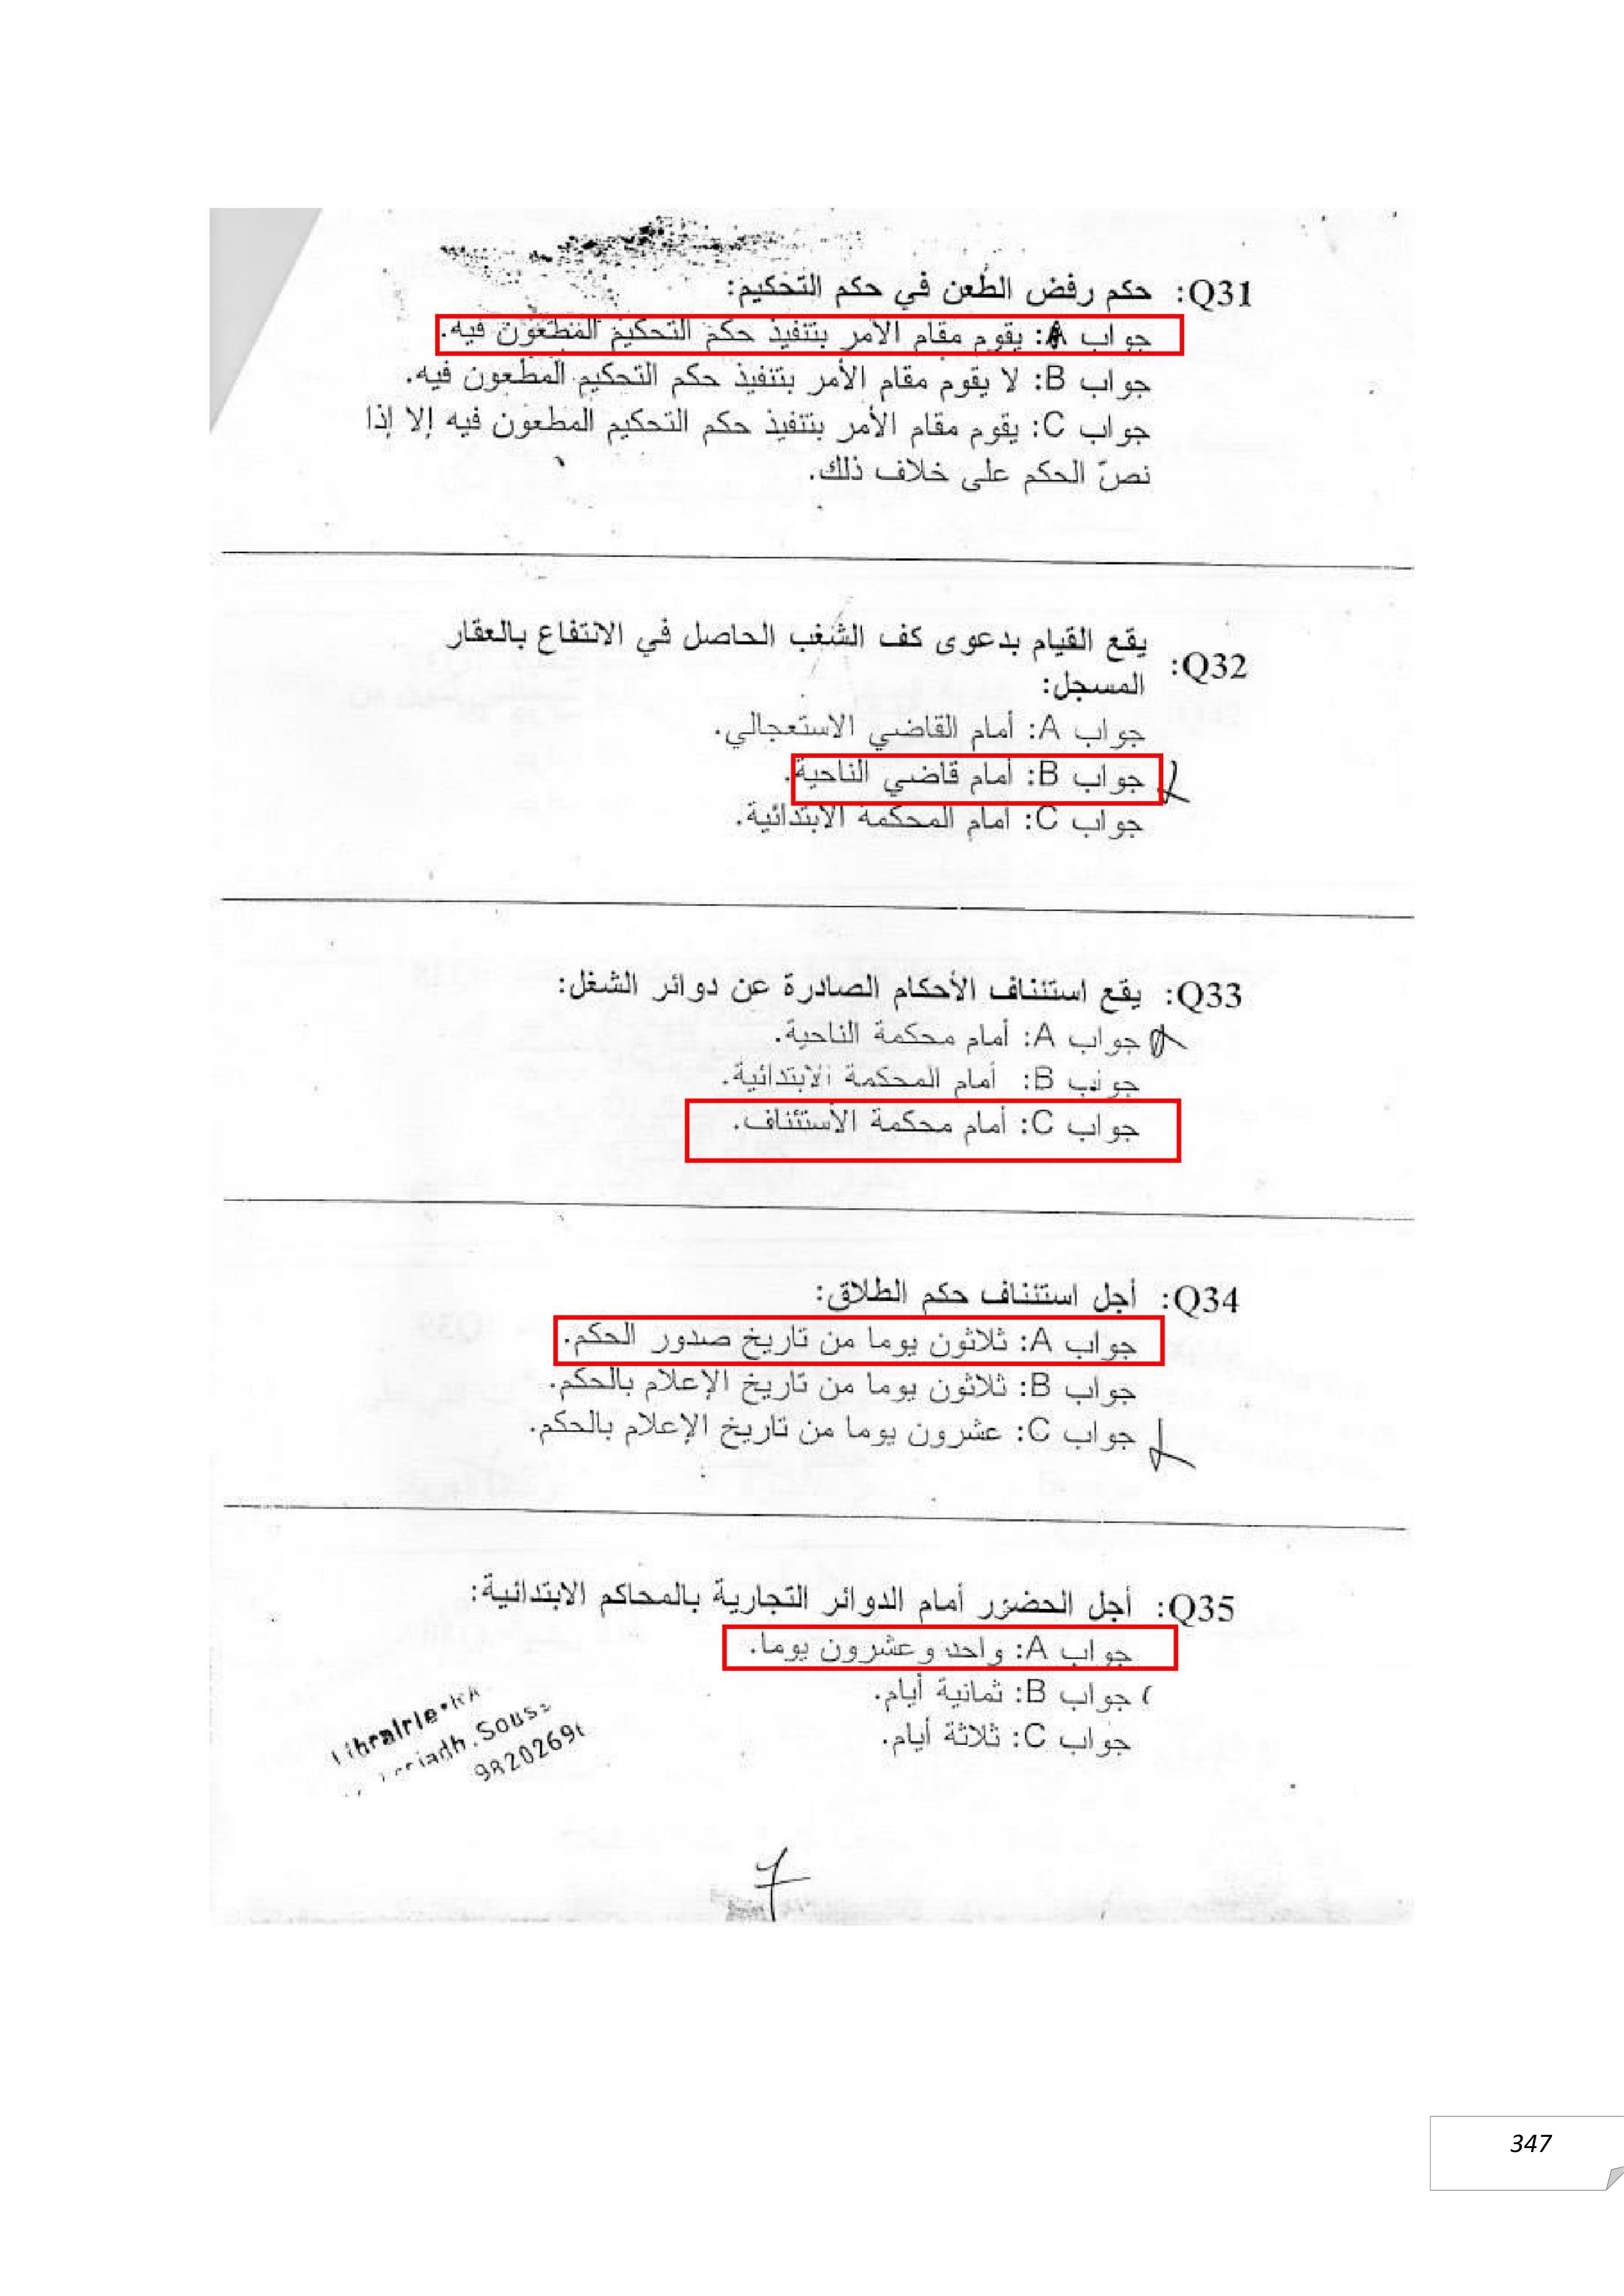 Q31: حكم رفض الطعن في حكم التحكيم:
جواب A: يقوم مقام الأمر بتنفيذ حكم التحكيم المطعون فيه.
جواب B: لا يقوم مقام الأمر بتنفيذ حكم التحكيم المطعون فيه.
جواب C: يقوم مقام الأمر بتنفيذ حكم التحكيم المطعون فيه إلا إذا
نصّ الحكم على خلاف ذلك.
Q32: يقع القيام بدعوى كف الشغب الحاصل في الانتفاع بالعقار
المسجل:
جواب A: أمام القاضي الاستعجالي.
جواب B: أمام قاضي الناحية.
جواب C: أمام المحكمة الابتدائية.
Q33: يقع استئناف الأحكام الصادرة عن دوائر الشغل:
جواب A: أمام محكمة الناحية.
جواب B: أمام المحكمة الابتدائية.
جواب C: أمام محكمة الاستئناف.
Q34: أجل استئناف حكم الطلاق:
جواب A: ثلاثون يوما من تاريخ صدور الحكم.
جواب B: ثلاثون يوما من تاريخ الإعلام بالحكم.
جواب C: عشرون يوما من تاريخ الإعلام بالحكم.
Q35: أجل الحضور أمام الدوائر التجارية بالمحاكم الابتدائية:
جواب A: واحد وعشرون يوما.
جواب B: ثمانية أيام.
جواب C: ثلاثة أيام.
Librairie
9820269
7
347